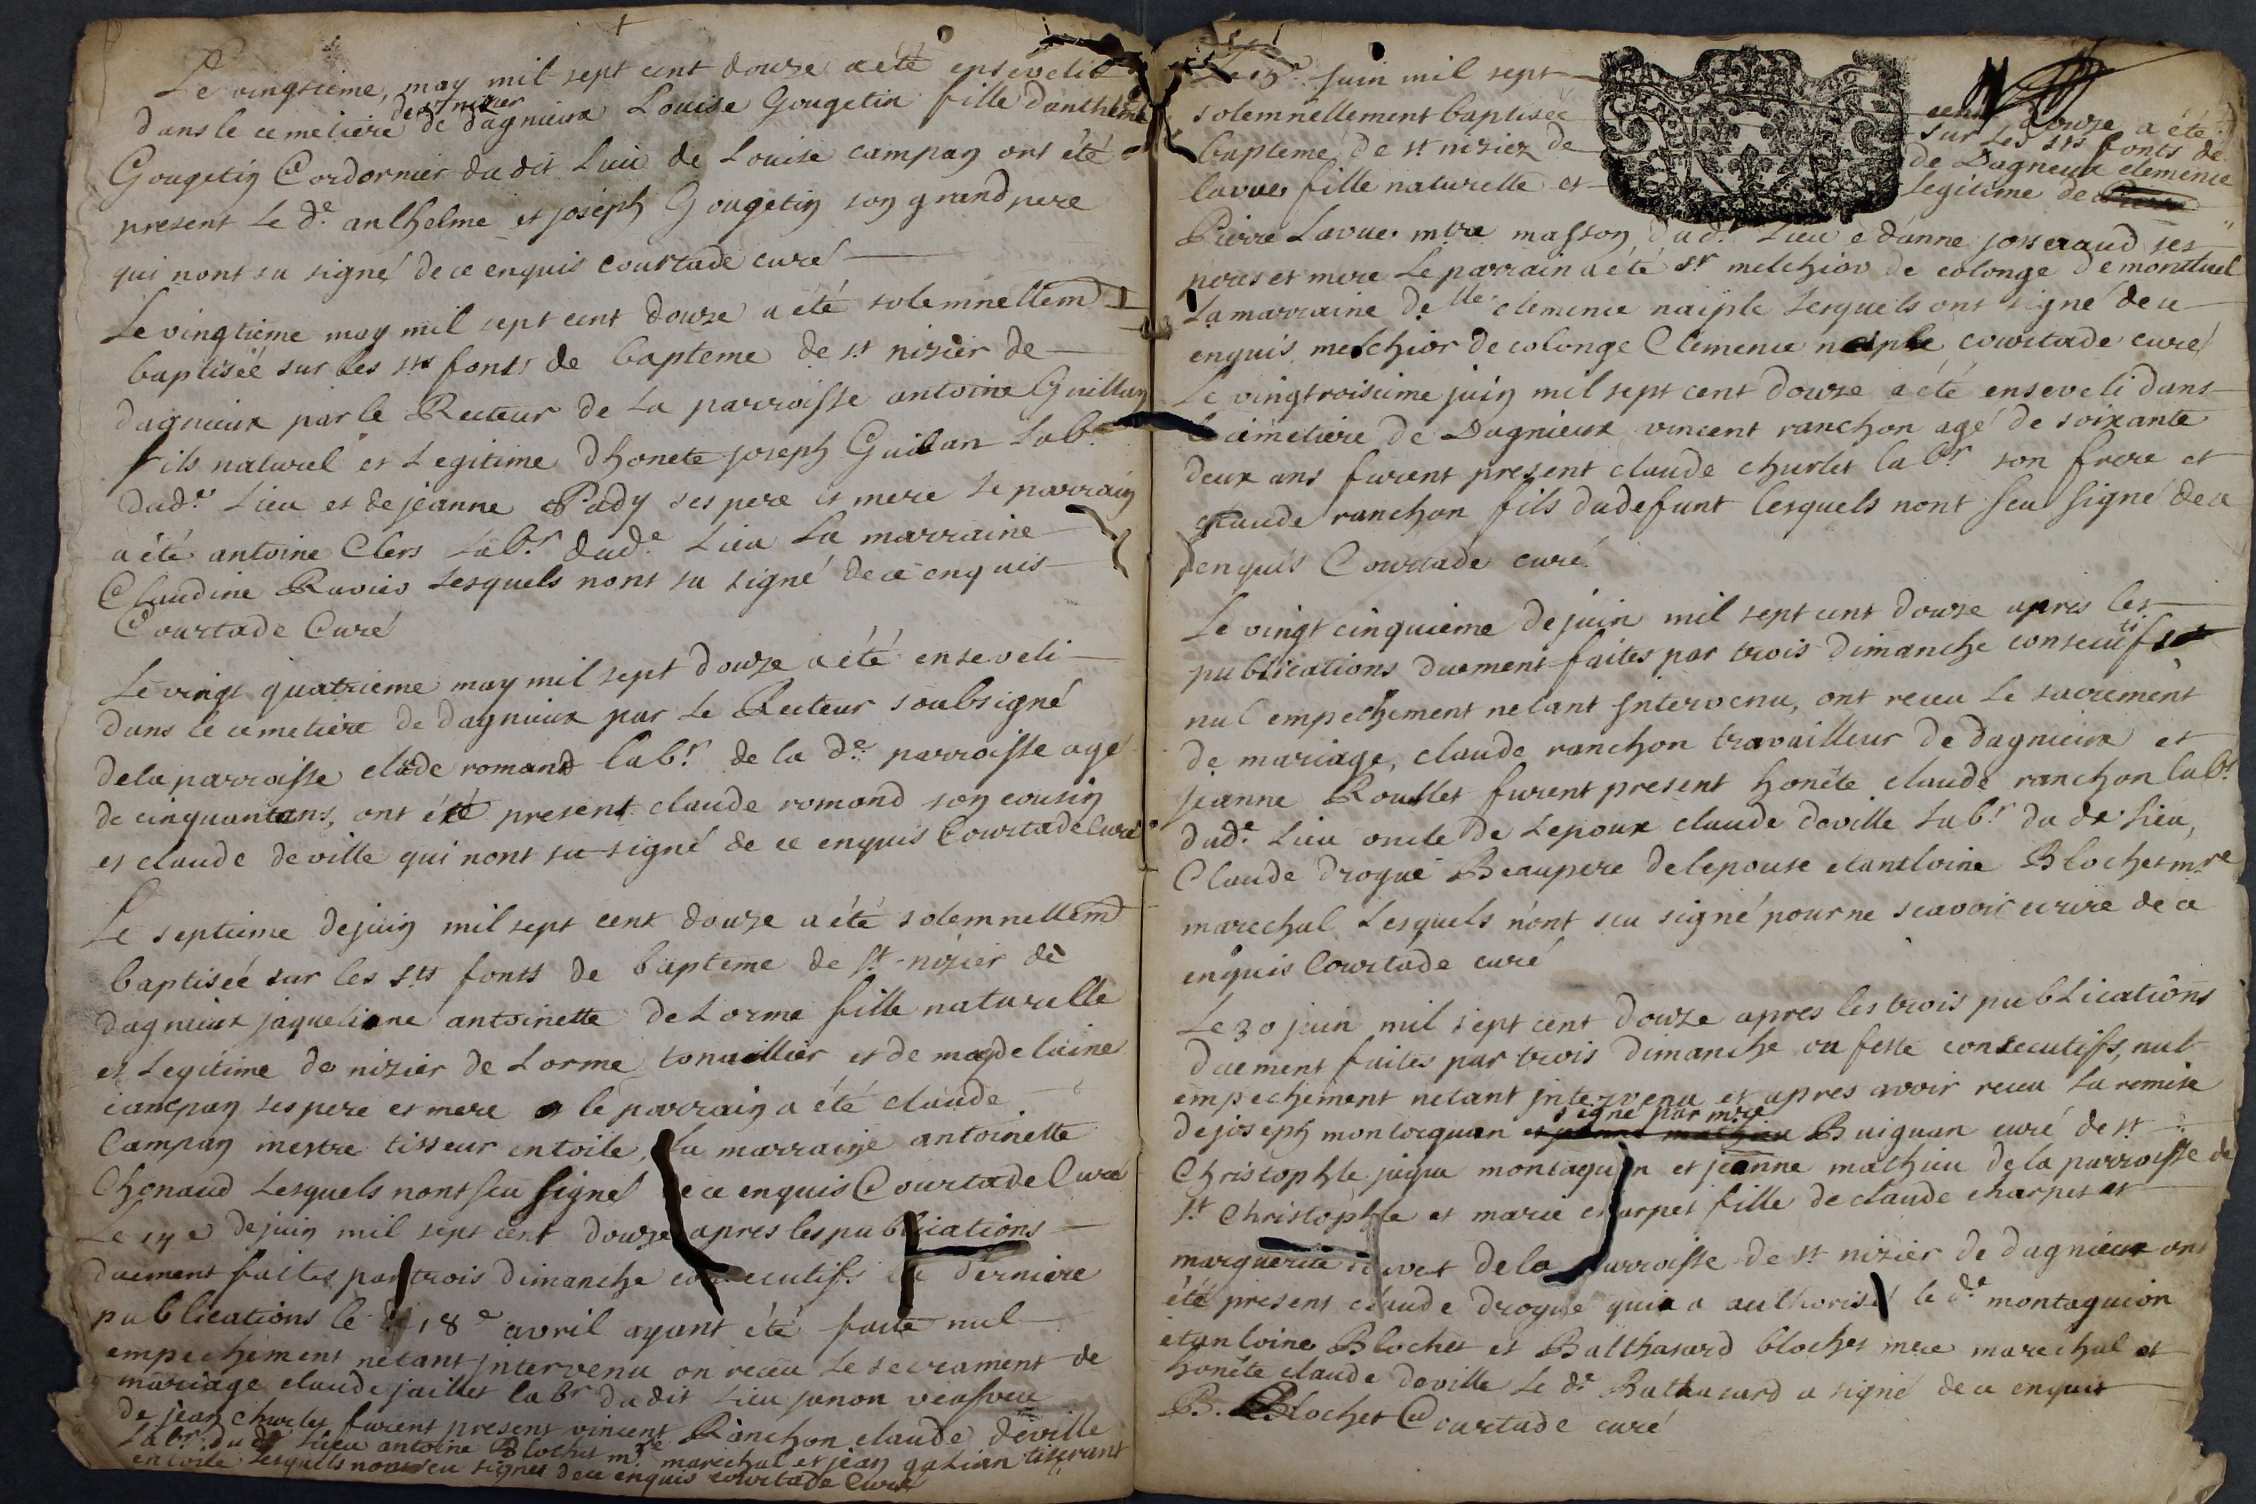 Le vingtieme, may mil sept cent douze a eté enseveli
dans le cemetiere de st nizier de dagnieux Louise Gougetin fille danthelme
Gougetin Cordonnier du dit Lieu de Louise campan ont été
present Le de. anthelme et joseph Gougetin son grand pere
qui nont su signé de ce enquis courtade curé
Le vingtieme may mil sept cent douze a été solemnellemt
baptiseé sur les sts fonts de bapteme de st nizier de
dagnieux par le Recteur de La parroisse antoine Guillan
fils naturel et Legitime dhonete joseph Guilan Labr
dude. Lieu et de jeanne Pady ses pere et mere Le parrain
a été antoine Clers Labr. dude. Lieu La marraine
Claudine Ravier Lesquels nont su signé de ce enquis
Courtade Curé
Le vingt quatrieme may mil sept douze a été enseveli
dans le cemetiere de dagnieux par Le Recteur soubsigné
de la parroisse clade romand labr. de la de. parroisse agé
de cinquantans, ont été present claude romand son cousin
et claude deville qui nont su signé de ce enquis Courtade Curé
Le septieme de juin mil sept cent douze a été solemnellemt
baptiseé sur les sts fonts de bapteme de st nizier de
dagnieux jaqueliene antoinette de Lorme fille naturelle
et Legitime de nizier de Lorme tonnellier et de magdelaine
campan ses pere et mere le parrain a été claude
Campan mestre tisseur en toile, La marraine antoinette
Chenaud Lesquels nont sceu signé de ce enquis Courtade Curé
Le 14e de juin mil sept cent douze apres les publications
duement faites par trois dimanche consecutifs la derniere
publications le 18e avril ayant été faite nul
empechement nétant intervenu on receu Le secrament de
mariage claude jaillet labr du dit Lieu janon veufvue
de jean charlet furent present vincent Ranchon claude deville
Labr. du de Lieu antoine Blochet mre marechal et jean galian tiserant
en toile Lesquels nont sceu signer de ce enquis courtade Curé
juin mil sept cent douze a été
solemnellement baptiseé sur Les sts fonts de
bapteme de st nizier de de Dagnieux clemence
lavue fille naturelle et Legitime de
Pierre Lavue mtre masson dud. Lieu e danne josseraud ses
peres et mere Le parrain a été sr melchior de colonge de montluel
La marraine delle clemence naiple Lesquels ont signé de ce
enquis melchior de colonge Clemence naiple courtade curé
Le vingtroisieme juin mil sept cent douze a été enseveli dans
le cimetiere de Dagnieux vincent ranchon agé de soixante
deux ans furent present claude charlet labr son frere et
claude ranchon fils du defunt lesquels nont sceu signé de ce
enquis Courtade curé
Le vingt cinquieme de juin mil sept cent douze apres les
publications duement faites par trois dimanche consecutifs
nul empechement netant intervenu, ont receu Le sacrement
de mariage, claude ranchon travailleur de dagnieux et
jeanne Roullet furent present honéte claude ranchon labr
dude. Lieu oncle de Lepoux claude deville Labr du de Lieu,
Claude drogué Beaupere de lepouse et antoine Blochet mre
marechal Lesquels n'ont sceu signé pour ne scavoir ecrire de ce
enquis Courtade curé
Le 30 juin mil sept cent douze apres les trois publications
duement faites par trois dimanche ou feste consecutifs, nul
empechement netant intervenu et apres avoir receu La remise
de joseph montorquan signé par mre Buiguan curé de st
Christophle jaque montaquon et jeanne mathieu de la parroisse de
st Christophle et marie charpet fille de claude charpet et
marguerite de la parroisse de st nizier de dagnieux ont
été present claude drogué qui a authorisé le de montaquion
et antoine Blochet et Balthasard blochet mere marechal et
honéte claude deville Le de Balthasard a signé de ce enquis
B. Blochet Courtade curé